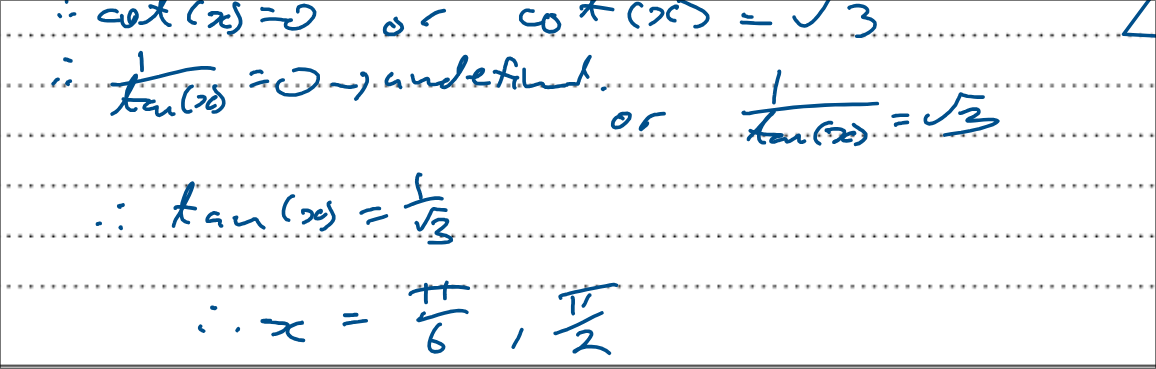 ∴ cot(x)=0 or cot(x) = √3
∴ 1/tan(x) = 0 → undefined. or 1/tan(x) = √3
∴ tan(x) = 1/√3
∴ x = π/6 , π/2